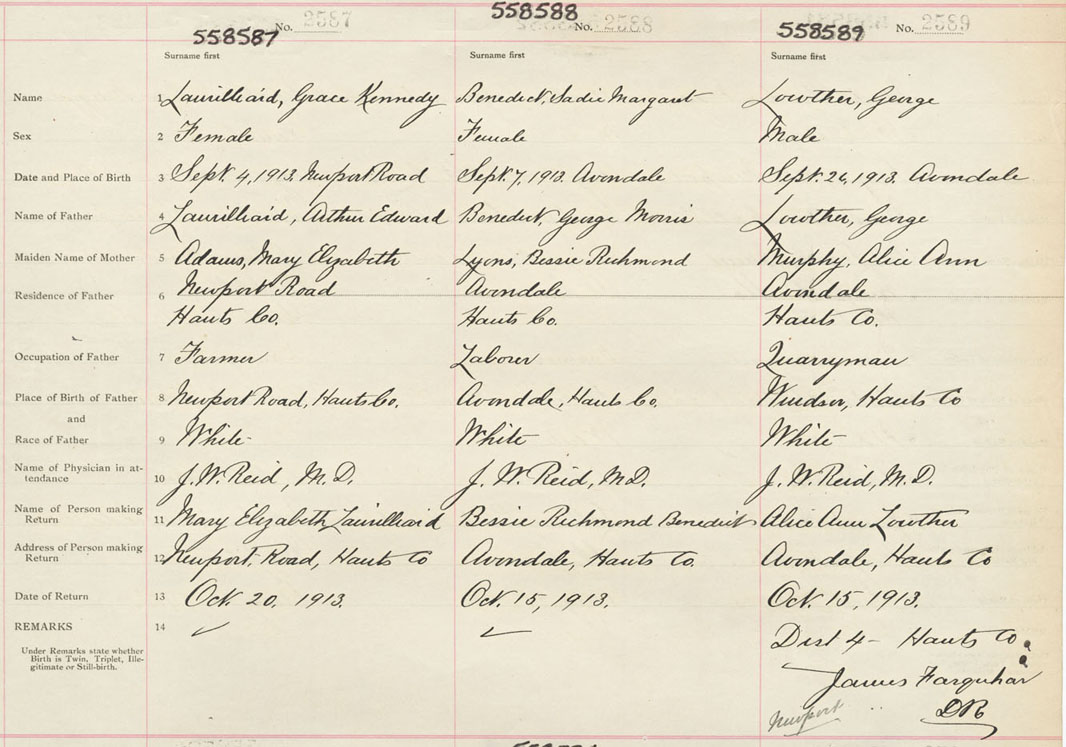 558587 No. 2587 558588 No. 2588 558589 No. 2589
Surname first Surname first Surname first
Name 1 Laurilliard, Grace Kennedy Benedict, Sadie Margaret Lowther, George
Sex 2 Female Female Male
Date and Place of Birth 3 Sept. 4, 1913, Newport Road Sept. 7, 1913. Avondale Sept. 26, 1913. Avondale
Name of Father 4 Laurilliard, Arthur Edward Benedict, George Morris Lowther, George
Maiden Name of Mother 5 Adams, Mary Elizabeth Lyons, Bessie Richmond Murphy, Alice Ann
Residence of Father 6 Newport Road Avondale Avondale
Hants Co. Hants Co. Hants Co.
Occupation of Father 7 Farmer Laborer Quarryman
Place of Birth of Father 8 Newport Road, Hants Co. Avondale, Hants Co. Windsor, Hants Co
and
Race of Father 9 White White White
Name of Physician in at-
tendance 10 J. W. Reid, M. D. J. W. Reid, M.D. J. W. Reid, M.D.
Name of Person making
Return 11 Mary Elizabeth Laurilliard Bessie Richmond Benedict Alice Ann Lowther
Address of Person making
Return 12 Newport Road, Hants Co Avondale, Hants Co. Avondale, Hants Co
Date of Return 13 Oct. 20, 1913. Oct. 15, 1913. Oct. 15, 1913.
REMARKS 14
Dist 4 - Hants Co.
Under Remarks state whether
Birth is Twin, Triplet, Ille-
gitimate or Still-birth.
James Farquhar
Newport DR